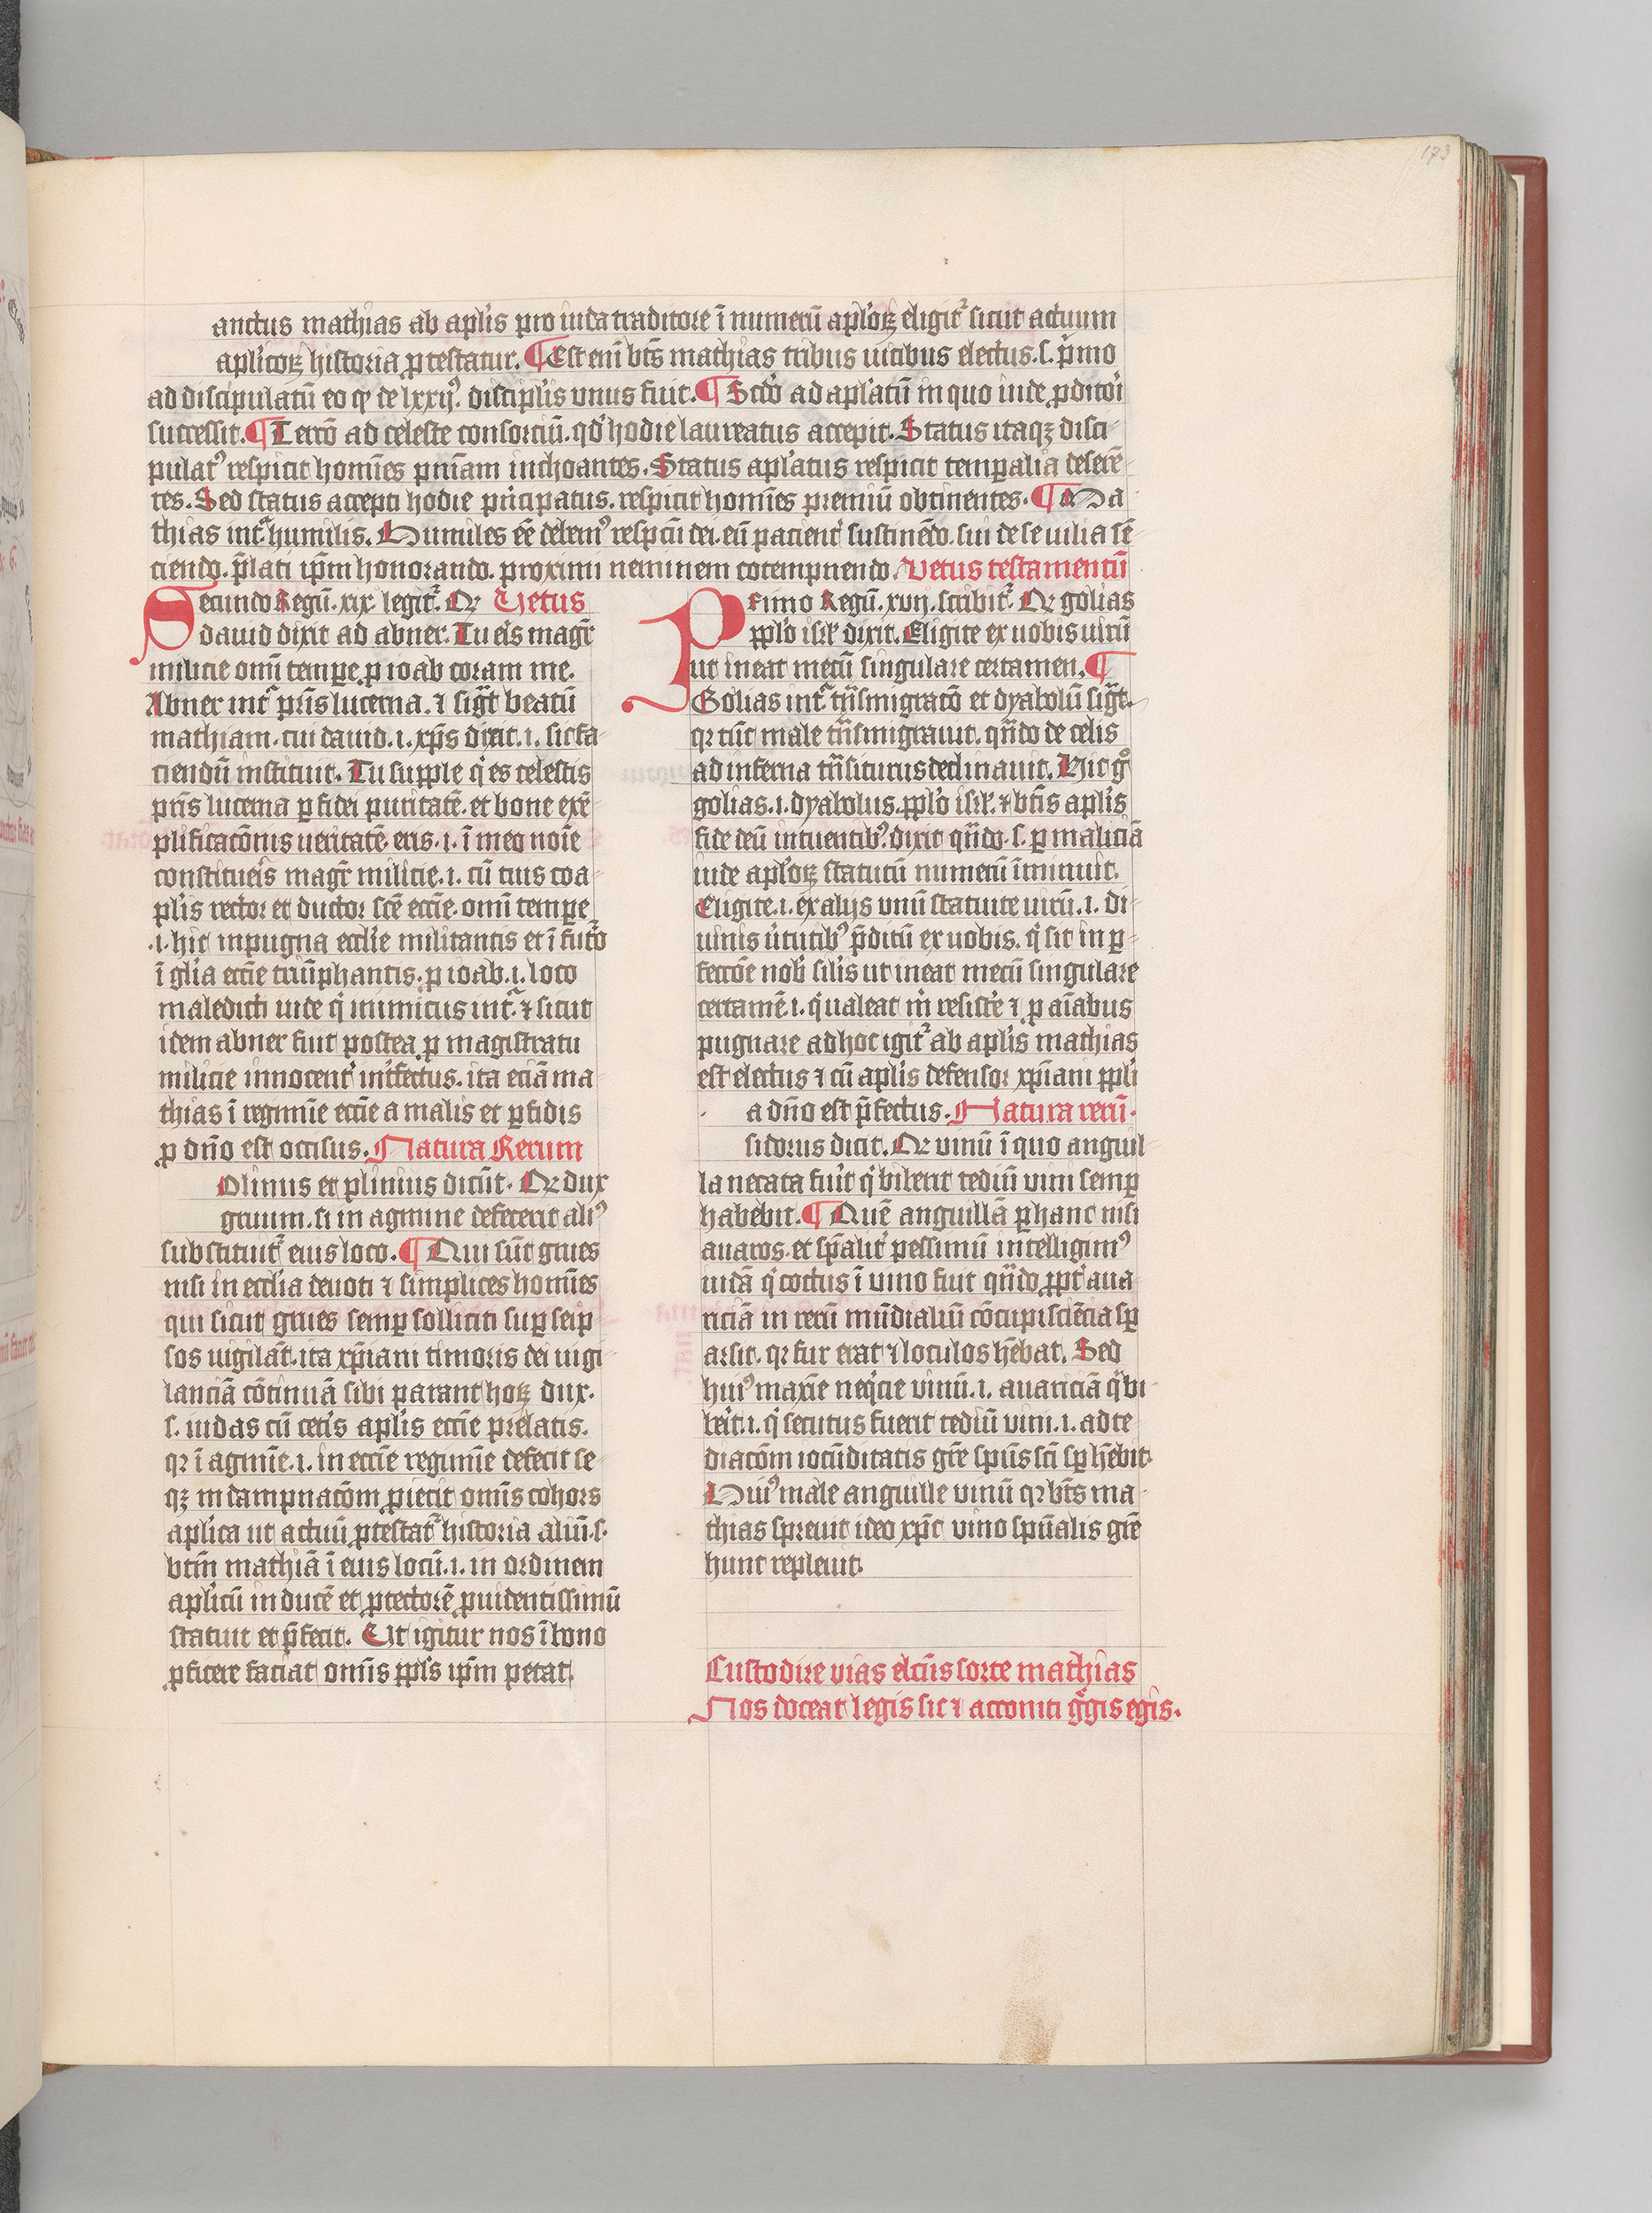 173
anctus mathias ab apl'is pro iuda traditore ī numerū apl'oꝝ eligit᷑ sicut actuum
apl'icoꝝ historia ꝓtestatur. ¶ Est eni bt̄s mathias tribus uicibus electus. s. p̄mo
ad discipulatū eo ꝙ de lxxijꝰ. discip̄lis vnus fuit. ¶ Scd̄o ad apl'atū in quo iude ꝓditoī
successit. ¶ Tercō ad celeste consorciū. qd' hodie laureatus accepit. Status itaqꝫ disci
pulatꝰ respicit homīes pn̄iam inchoantes. Status apl'atus respicit temꝑalia deserē
tes. Sed status accepti hodie p̓ncipatus. respicit homīes premiū obtinentes. ¶ Ma
thias int᷑ humilis. Humiles eē debemꝰ respc̄u dei. eū pacient' sustinēdo. sui de se uilia sē
ciendo. p̄lati ip̄m honorando. proximi neminem cotempnendo. Vetus testamentū
Secundo Regū. xix. legit᷑. Qꝛ Vetus
dauid dixit ad abner. Tu eīs magr̄
milicie omī tempe. ꝓ ioab coram me.
Abner int᷑ pr̄is lucerna. ⁊ sigt̄ beatū
mathiam. cui dauid. i. xp̄s dixit. i. sic fa
ciendū instituit. Tu supple q̓ es celestis
pr̄is lucerna ꝑ fidei puritatē. et bone exē
plificacōnis ueritatē. eris. i. ī meo noīe
constitueīs magr̄ milicie. i. cū tuis coa
pl'is rector et ductor scē eccīe. omī tempe
.i. hic in pugna ecclīe militantis et ī futō
ī glīa eccīe triūphantis. ꝓ ioab. i. loco
maledicti iude q̓ inimicus int᷑ ⁊ sicut
idem abner fuit postea ꝓ magistratu
milicie innocent' int'fectus. ita eciā ma
thias ī regimīe eccīe a malis et ꝑfidis
ꝓ dn̄o est occisus. Natura Rerum
Olinus et plinius dicūt. Qꝛ dux
gruum. si in agmine defecerit aliꝰ
substituit᷑ eius loco. ¶ Qui sūt grues
nisi in ecclīa deuoti ⁊ simplices homīes
qui sicut grues semꝑ solliciti suꝑ seip
sos uigilāt. ita xp̄iani timoris dei uigi
lanciā cōtinuā sibi parant hoꝝ dux.
s. iudas cū cet'is apl'is eccīe prelatis.
qꝛ ī agmīe. i. in eccīe regimīe defecit se
qꝫ in dampnacōm ꝓiecit omīs cohors
apl'ica ut actuū ꝓtestat᷑ historia aliū. s.
btm̄ mathiā ī eius locū. i. in ordinem
apl'icū in ducē et ꝓtectorē ꝓuidentissimū
statuit et p̄fecit. Ut igitur nos ī bono
ꝓficere faciat omīs ppl's ip̄m petat.
Primo Regū. xvij. scribit᷑. Qꝛ golias
ppl'o isrl' dixit. Eligite ex uobis uirū
ut ineat mecū singulare certamen. ¶
Golias int᷑ trāsmigracō et dyabolū sigt̄.
qꝛ tūc male trāsmigrauit. qn̄do de celis
ad inferna trāsiturus declinauit. Hic gͦ
golias. i. dyabolus. ppl'o isrl'. ⁊ bt̄is apl'is
fide deū intuentibꝰ. dixit qn̄do. s. ꝑ maliciā
iude apl'oꝝ statutū numerū īminuit.
Eligite. i. ex alijs vnū statuite uirū. i. di
uinis v̓tutibꝰ p̄ditū ex uobis. q̓ sit in ꝑ
feccōe nob' sil'is ut ineat mecū singulare
certamē. i. q̓ ualeat m̓ resist'e ⁊ ꝓ aīabus
pugnare ad hoc igit᷑ ab apl'is mathias
est electus ⁊ cū apl'is defensor xp̄iani ppl'i
a dn̄o est p̄fectus. Natura rerū.
sidorus dicit. Qꝛ vinū ī quo anguil
la necata fuīt q̓ biberit tediū vini semꝑ
habebit. ¶ Quē anguillā ꝑ hanc nisi
auaros. et sp̄alit' pessimū intelligimꝰ
iudā q̓ coctus ī vino fuit qn̄do ꝓpt' aua
riciā in rerū mūdialiū cōcupisciēcia sꝑ
arsit. qꝛ fur erat ⁊ loculos hēbat. Sed
huiꝰ maxīe neq̓cie vinū. i. auariciā q̓ bi
be'it. i. q̓ secutus fuerit tediū vini. i. ad te
diacōm iocūditatis gr̄e spūs sc̄i sꝑ hēbit.
Huiꝰ male anguille vinū qꝛ bt̄s ma
thias spreuit ideo xp̄c vino spūalis gr̄e
hunc repleuit.
Custodire vias elcūs sorte mathias
Nos doceat legis sic ⁊ acconiti g̊gis egis.